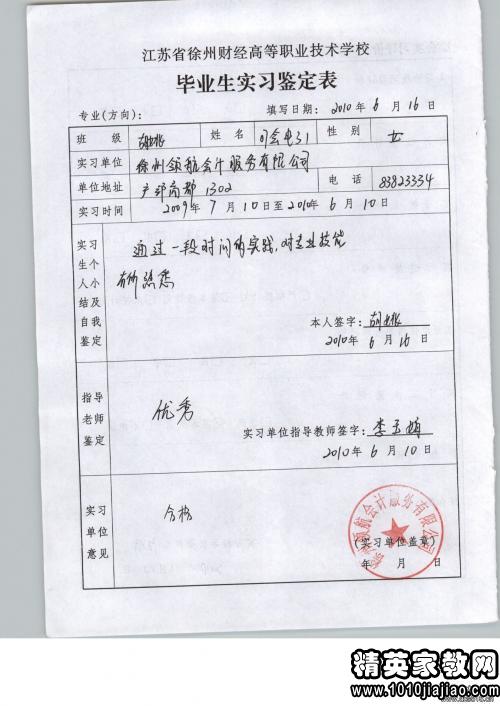 江苏省徐州财经高等职业技术学校
毕业生实习鉴定表
专业(方向): 填写日期: 2010年 6月 16日
班 级 姓 名 司会电31 性 别 女
实习单位 徐州领航会计服务有限公司
单位地址 户部商都 1302 电 话 83823334
实习时间 2009年 7月10日至2010年 6月10日
实习生个人小结及自我鉴定
通过一段时间的实践,对专业技能
有所熟悉
本人签字:
2010年 6月 16日
指导老师鉴定
优秀
实习单位指导教师签字: 李玉娟
2010年 6月 10日
实习单位意见
合格
领航会计服务有限公司
(实习单位盖章)
年 月 日
精英家教网
www.1010jiajiao.com